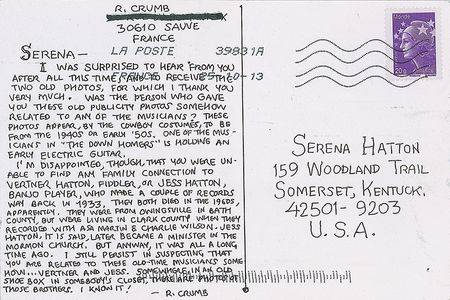 R. CRUMB
30610 SAUVE
FRANCE
LA POSTE 39831A
FRANCE 25-10-13
SERENA —
I WAS SURPRISED TO HEAR FROM YOU
AFTER ALL THIS TIME, AND TO RECEIVE THE
TWO OLD PHOTOS, FOR WHICH I THANK YOU
VERY MUCH. WAS THE PERSON WHO GAVE
YOU THESE OLD PUBLICITY PHOTOS SOMEHOW
RELATED TO ANY OF THE MUSICIANS? THESE
PHOTOS APPEAR, BY THE COWBOY COSTUMES, TO BE
FROM THE 1940s OR EARLY '50s. ONE OF THE MUS-
ICIANS IN "THE DOWN HOMERS" IS HOLDING AN
EARLY ELECTRIC GUITAR.
I'M DISAPPOINTED, THOUGH, THAT YOU WERE UN-
ABLE TO FIND ANY FAMILY CONNECTION TO
VERTNER HATTON, FIDDLER, OR JESS HATTON,
BANJO PLAYER, WHO MADE A COUPLE OF RECORDS
WAY BACK IN 1933. THEY BOTH DIED IN THE 1960s,
APPARENTLY. THEY WERE FROM OWINGSVILLE IN BATH
COUNTY, BUT WERE LIVING IN CLARK COUNTY WHEN THEY
RECORDED WITH ASA MARTIN & CHARLIE WILSON. JESS
HATTON, IT IS SAID, LATER BECAME A MINISTER IN THE
MORMON CHURCH. BUT ANYWAY, IT WAS ALL A LONG
TIME AGO. I STILL PERSIST IN SUSPECTING THAT
YOU ARE RELATED TO THESE OLD-TIME MUSICIANS SOME
HOW... VERTNER AND JESS. SOMEWHERE, IN AN OLD
SHOE BOX IN SOMEBODY'S CLOSET, THERE ARE PHOTOS OF
THOSE BROTHERS, I KNOW IT!
— R. CRUMB
Monde
20g
SERENA HATTON
159 WOODLAND TRAIL
SOMERSET, KENTUCKY.
42501-9203
U.S.A.